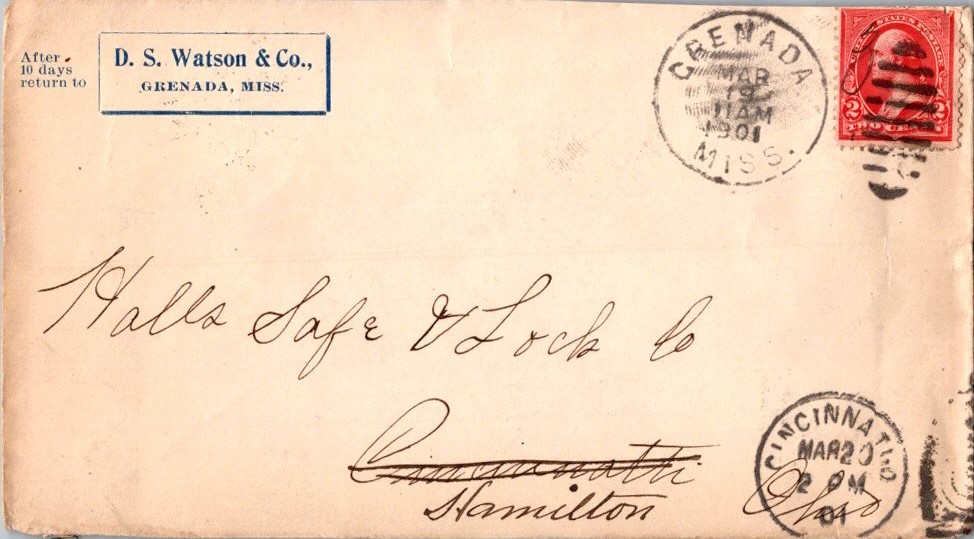 After
10 days
return to
D. S. Watson & Co.,
GRENADA, MISS.
GRENADA
MAR
19
11 AM
1901
MISS.
UNITED STATES POSTAGE
2 2
TWO CENTS
Halls Safe & Lock Co
Cincinnatti
Hamilton Ohio
CINCINNATI, O
MAR 20
2 PM
01